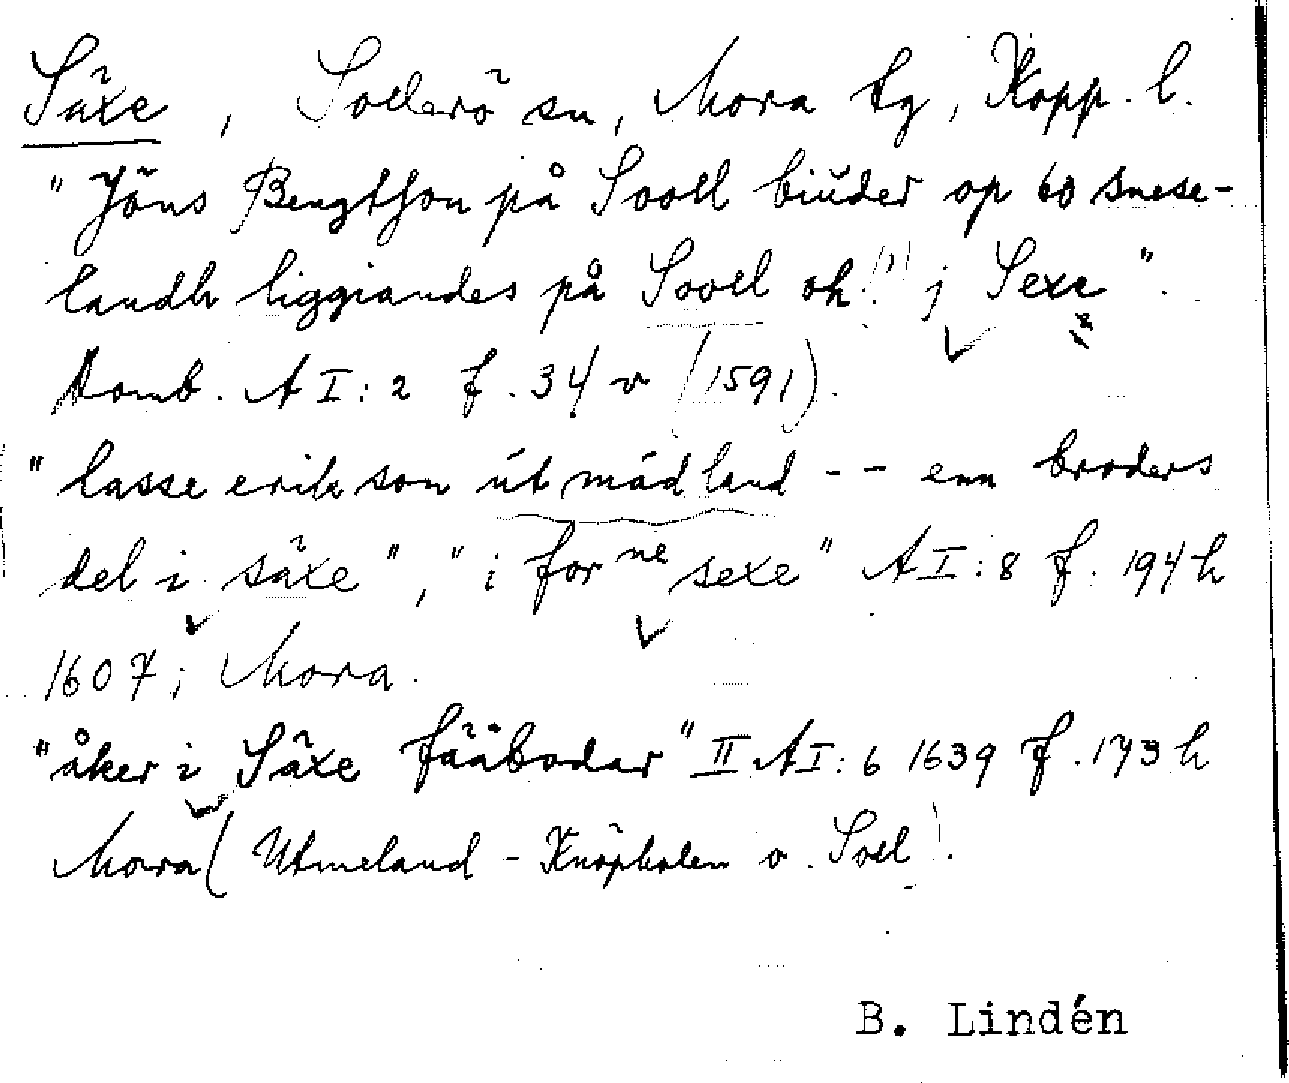 Säxe, Sollerö sn, Mora tg, Kopp. l.
"Jöns Bengtson på Sooll biuder op 60 snese-
landh liggiandes på Sooll oh(!) j Sexe".
Domb. A I: 2 f. 34 v (1591).
"lasse erikson út mád land -- enn broders
del i säxe", "i for ne sexe" A I: 8 f. 194 h
1607; Mora.
"åker i Säxe fääbodar" II A I: 6 1639 f. 173 h
Mora (Utmeland - Knöpholen o. Soll).
B. Lindén